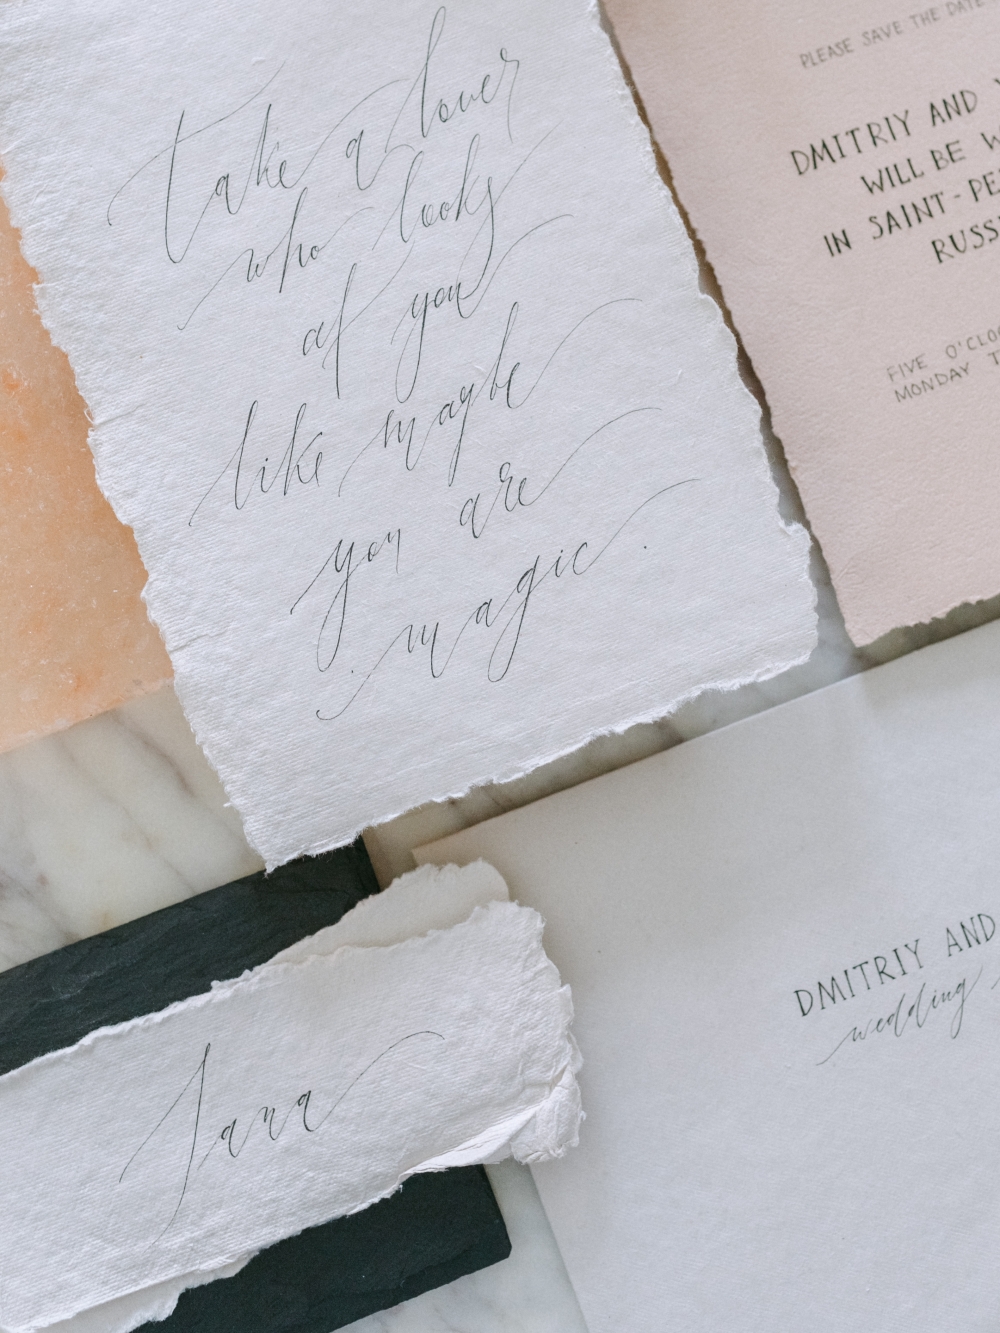 take a lover
who looks
at you
like maybe
you are
magic.
PLEASE SAVE THE DATE
DMITRIY AND
WILL BE
IN SAINT-PE
RUSS
FIVE O'CLO
MONDAY
DMITRIY AND
wedding